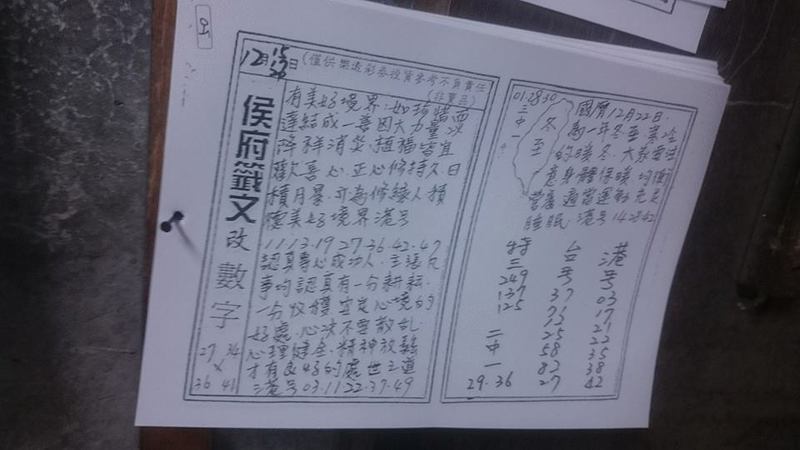 95
12月
日
(僅供樂透彩券投資參考不負責任
(非賣品)
侯府籤文
改
數字
27 34
×
36 41
有美好境界:如
連結成一善因大力量
降祥消災.植福皆宜
歡喜心.正心修持久.日
積月累.可為修緣人積
德美好境界港号
11.13.19.27.36.42.47
認真專心成功人.言讓凡
事均認真有一分耕耘.
一分收穫宜定心境的
好處.心決不要散乱.
心理健全.精神放鬆
才有良好的處世之道
港号03.11.22.37.49
01.28.30
三中一
冬至
國曆12月22日.
為一年冬至寒冷
的暖冬.大家要注
意身體保暖均衡
營養適當運動充足
睡眠.港号14.28.42
特三
249
137
125
二中一
29.36
台号
37
73
25
58
82
27
港号
03
17
21
22
35
38
42